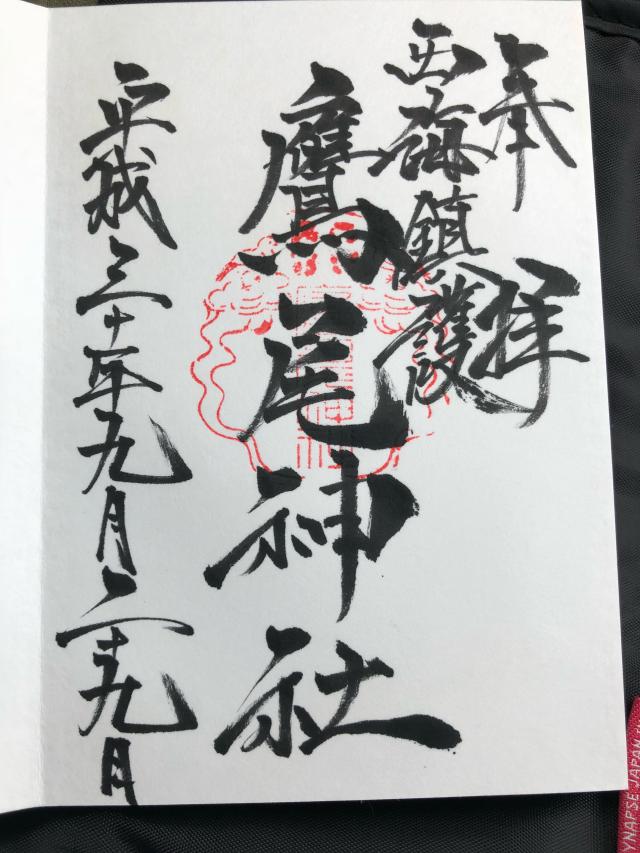 奉拝
西海鎮護
鷹尾神社
平成三十年九月二十九月
YNAPSE JAPAN